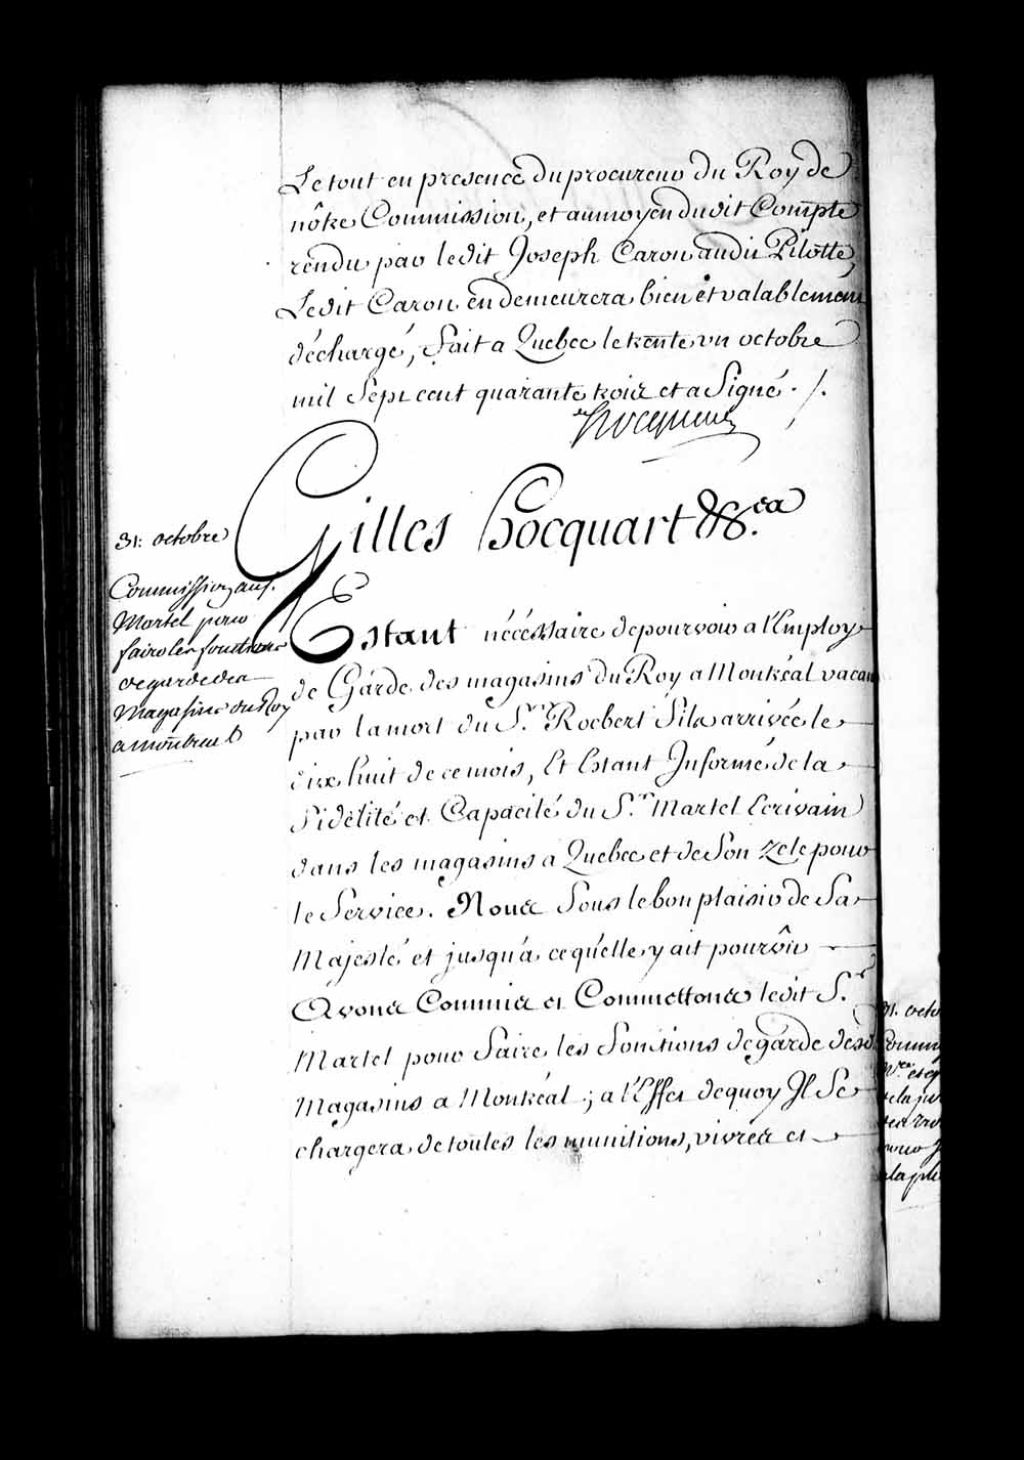 Le tout en presence du procureur du Roy de
nôtre Commission, et aumoyen dudit Compte
rendu par ledit Joseph Caron audit Pilotte,
Ledit Caron en demeurera bien et valablement
déchargé, Fait a Quebec le trente un octobre
mil Sept cent quarante trois et a Signé ./.
Hocquart
Gilles Hocquart &c.ea
31: octobre
Commission au S.
Martel pour
faire les fonctions
de garde des
Magasins du Roy
a montreal
Estant nécéssaire depourvoir a l'Employ
de Garde des magasins du Roy a Montréal vacant
par la mort du S.r Roebert fils arrivée le
dix huit de ce mois, Et Estant Informé de la
fidélité et Capacité du S.r Martel Ecrivain
dans les magasins a Quebec et de Son zele pour
le Service. Nous Sous le bon plaisir de Sa
Majesté et jusqu'a ce qu'elle y ait pourvû
Avons Commis et Commettons ledit S.r
Martel pour faire les fonctions de garde des d.
Magasins a Montréal ; a l'Effet dequoy Il Se
chargera de toutes les munitions, vivres et
31. octo
Comm
de la ju